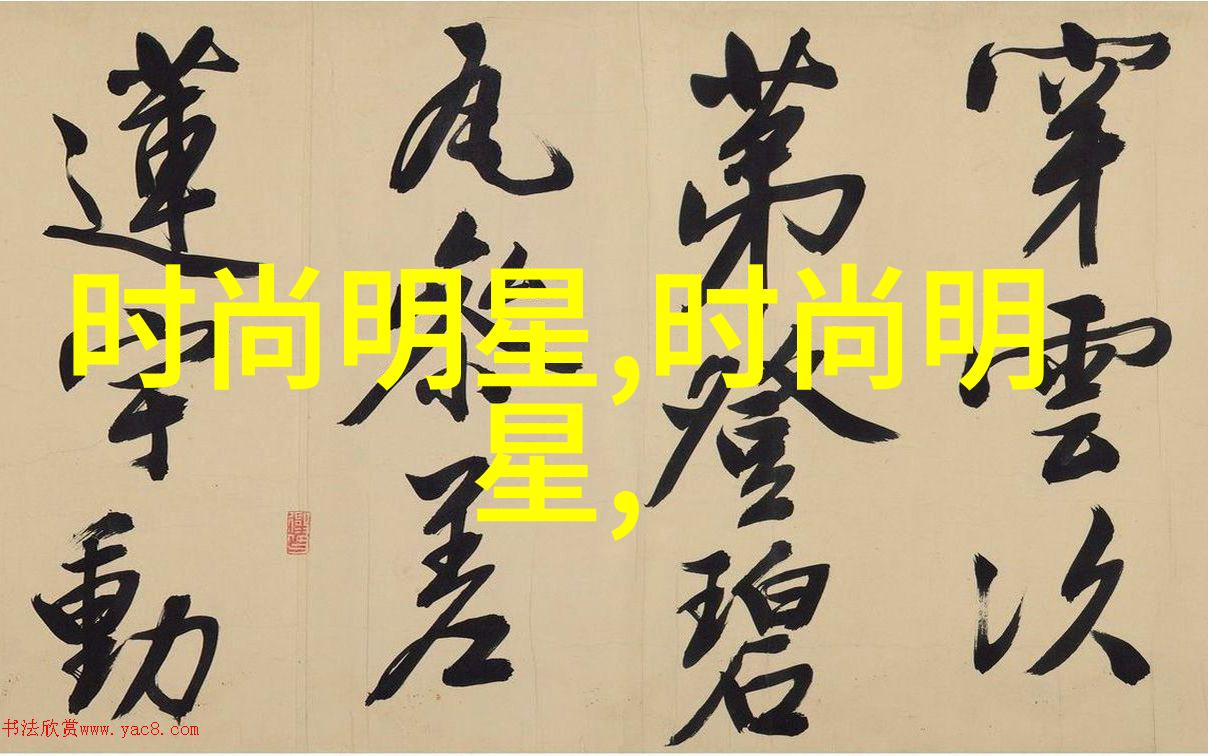 穿雲次
苐登碧
瓦參差
蓮宇動
时尚明星,时尚明
星,
书法欣赏www.yac8.com